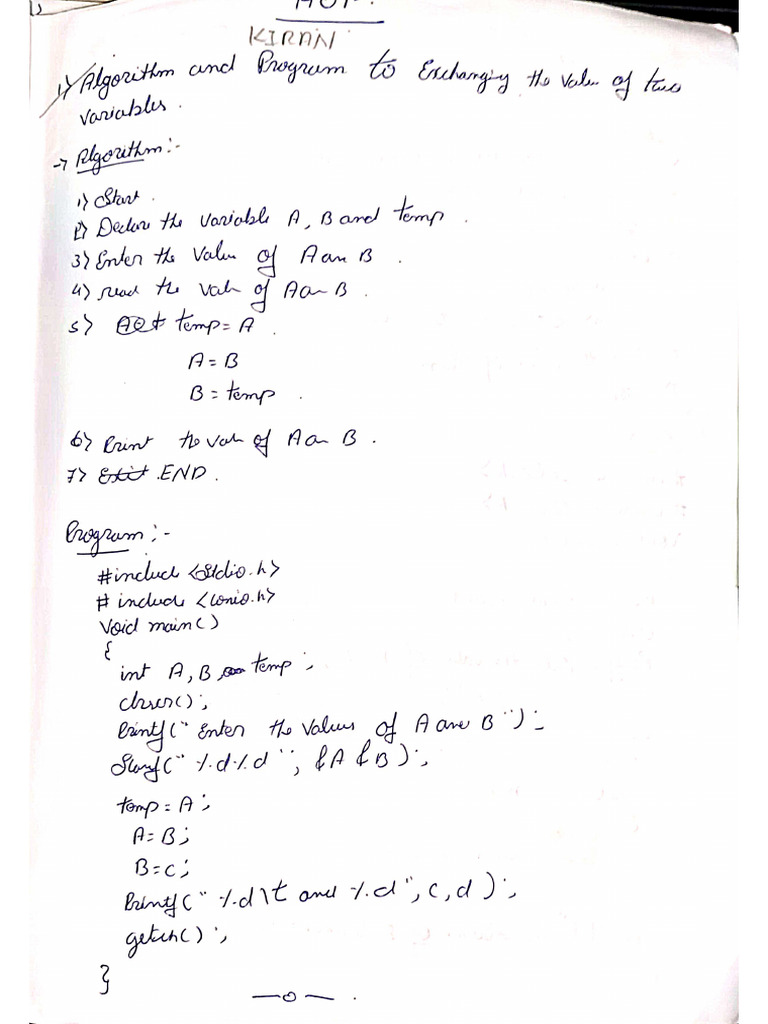 KIRAN
1) Algorithm and Program to Exchanging the value of two
variables.
→ Algorithm:-
1) Start.
2) Declare the variable A, B and temp.
3) Enter the value of A an B.
4) read the valu of A an B.
5) temp = A.
A = B
B = temp.
6) Print the valu of A an B.
7) Exit. END.
Program:-
#include <stdio.h>
# include <conio.h>
Void main()
{
int A, B, temp;
clrscr();
Printf(" Enter the values of A and B ");
Scanf(" %d%d ", &A &B);
temp = A;
A = B;
B = c;
Printf(" %d\t and %d ", c, d);
getch();
}
—0— .